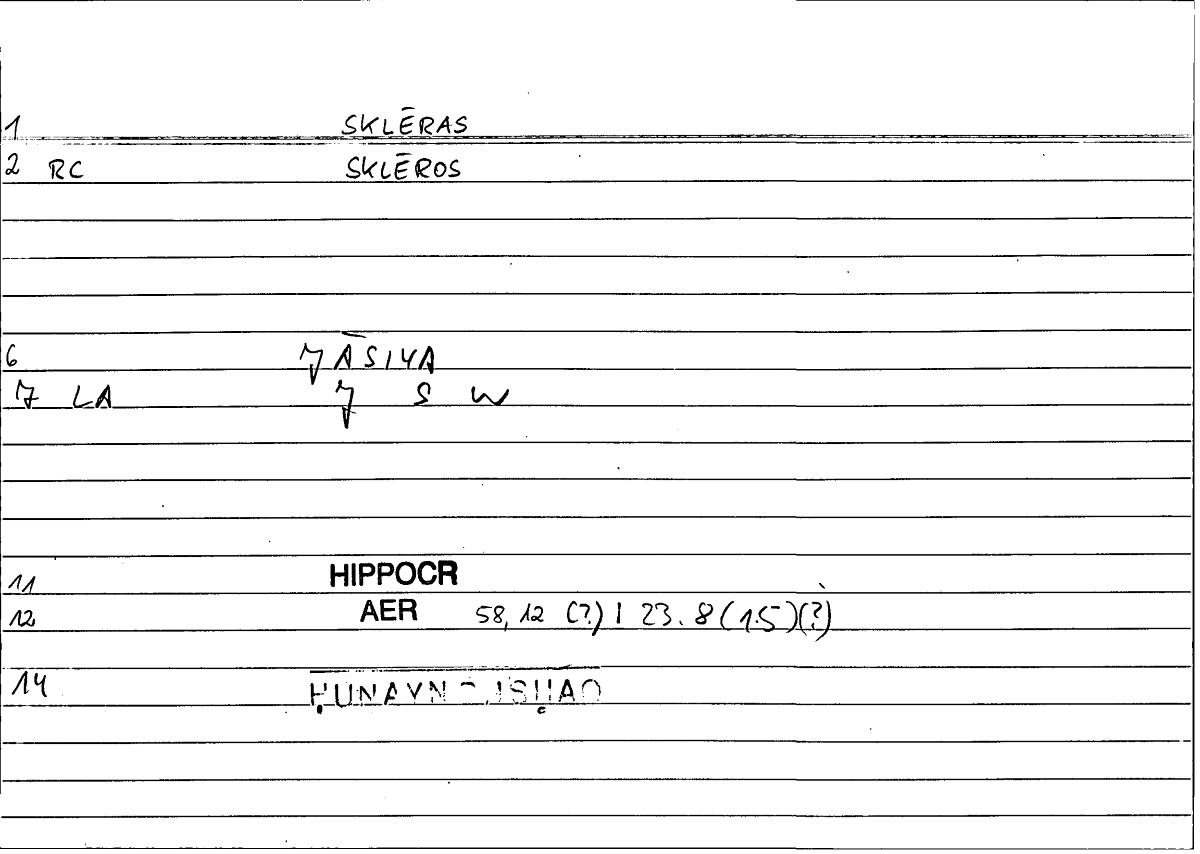 1 SKLĒRAS
2 RC SKLĒROS
6 QĀSIYA
7 LA Q S W
11 HIPPOCR
12 AER 58, 12 (?) | 23.8 (15)(?)
14 ḤUNAYN B.ISḤAQ